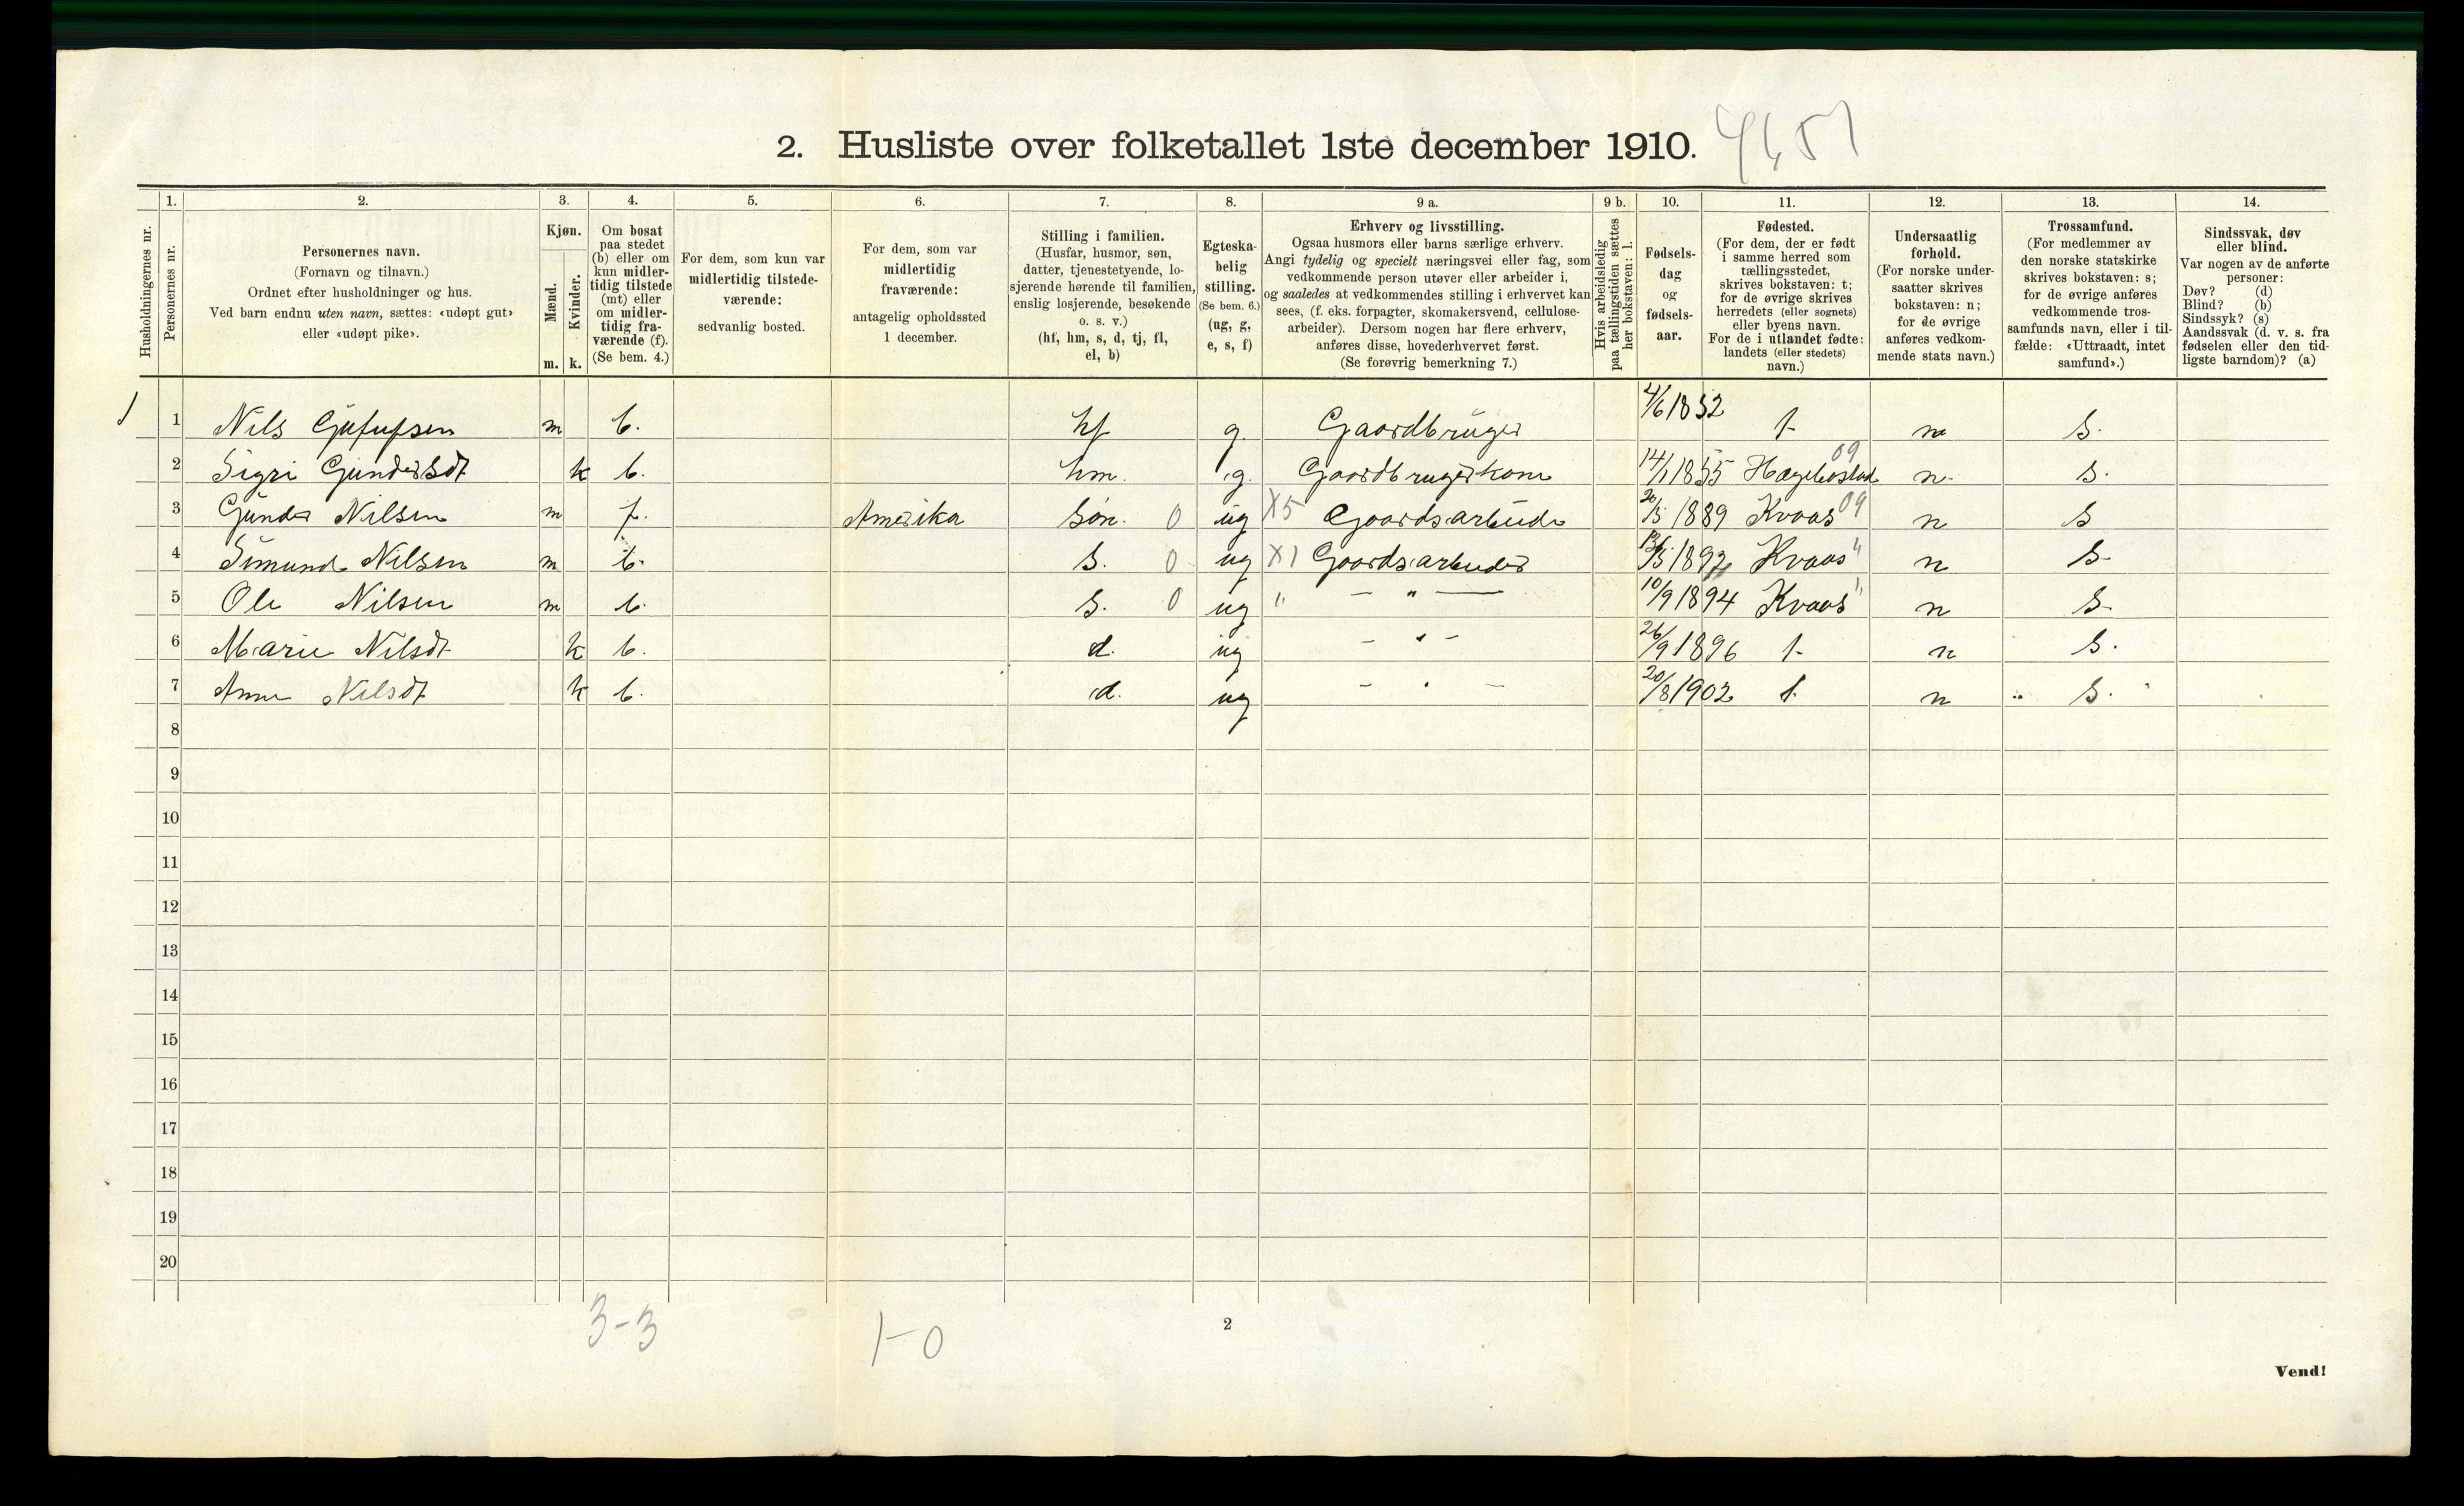 2. Husliste over folketallet 1ste december 1910.
Husholdningernes nr.
1. Personernes nr.
2. Personernes navn.
(Fornavn og tilnavn.)
Ordnet efter husholdninger og hus.
Ved barn endnu uten navn, sættes: «udøpt gut»
eller «udøpt pike».
3. Kjøn.
Mænd. m.
Kvinder. k.
4. Om bosat
paa stedet
(b) eller om
kun midler-
tidig tilstede
(mt) eller
om midler-
tidig fra-
værende (f).
(Se bem. 4.)
5. For dem, som kun var
midlertidig tilstede-
værende:
sedvanlig bosted.
6. For dem, som var
midlertidig
fraværende:
antagelig opholdssted
1 december.
7. Stilling i familien.
(Husfar, husmor, søn,
datter, tjenestetyende, lo-
sjerende hørende til familien,
enslig losjerende, besøkende
o. s. v.)
(hf, hm, s, d, tj, fl,
el, b)
8. Egteska-
belig
stilling.
(Se bem. 6.)
(ug, g,
e, s, f)
9 a. Erhverv og livsstilling.
Ogsaa husmors eller barns særlige erhverv.
Angi tydelig og specielt næringsvei eller fag, som
vedkommende person utøver eller arbeider i,
og saaledes at vedkommendes stilling i erhvervet kan
sees, (f. eks. forpagter, skomakersvend, cellulose-
arbeider). Dersom nogen har flere erhverv,
anføres disse, hovederhvervet først.
(Se forøvrig bemerkning 7.)
9 b. Hvis arbeidsledig
paa tællingstiden sættes
her bokstaven: l.
10. Fødsels-
dag
og
fødsels-
aar.
11. Fødested.
(For dem, der er født
i samme herred som
tællingsstedet,
skrives bokstaven: t;
for de øvrige skrives
herredets (eller sognets)
eller byens navn.
For de i utlandet fødte:
landets (eller stedets)
navn.)
12. Undersaatlig
forhold.
(For norske under-
saatter skrives
bokstaven: n;
for de øvrige
anføres vedkom-
mende stats navn.)
13. Trossamfund.
(For medlemmer av
den norske statskirke
skrives bokstaven: s;
for de øvrige anføres
vedkommende tros-
samfunds navn, eller i til-
fælde: «Uttraadt, intet
samfund».)
14. Sindssvak, døv
eller blind.
Var nogen av de anførte
personer:
Døv? (d)
Blind? (b)
Sindssyk? (s)
Aandssvak (d. v. s. fra
fødselen eller den tid-
ligste barndom)? (a)
1 1 Nils m b. hf g. Gaardbruger 4/6 1852 t n s.
2 Sigri Gundersdt k b. hm. g. Gaardbrugerkone 14/1 1855 Hægebostad 09 n. s.
3 Gunder Nilsen m f. Amerika Søn. 0 ug X5 Gaardsarbeider 1889 Kvaas 09 n s
4 Simund Nilsen m b. s. 0 ug X1 Gaardsarbeider 1892 Kvaas " n s.
5 Ole Nilsen m b. s. 0 ug " — " — 10/9 1894 Kvaas " n s.
6 Marie Nilsdt k b. d. ug — " — 26/9 1896 t n s.
7 Anne Nilsdt k b. d. ug — " — 20/8 1902 t. n s.
8
9
10
11
12
13
14
15
16
17
18
19
20
3-3
1-0
2
Vend!